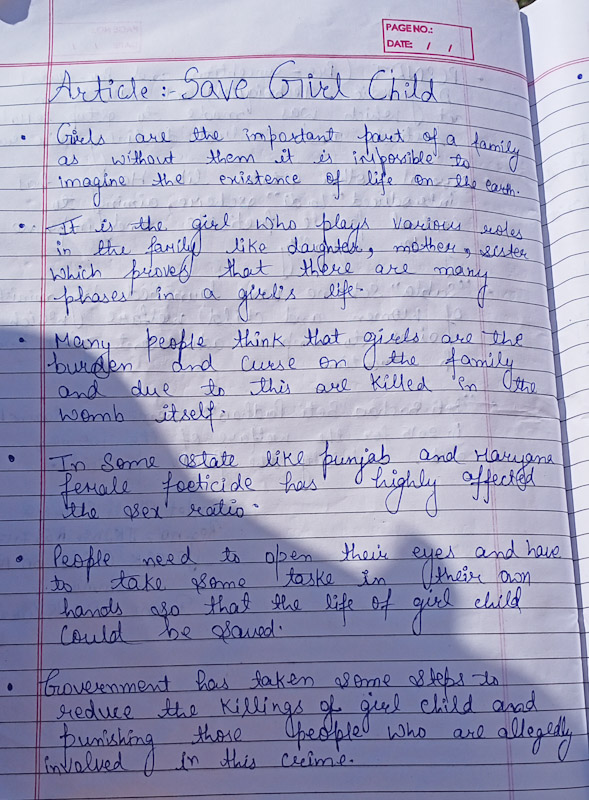 PAGE NO.:
DATE: / /
Article :- Save Girl Child
• Girls are the important part of a family
as without them it is impossible to
imagine the existence of life on the earth.
• It is the girl who plays various roles
in the family like daughter, mother, sister
which proves that there are many
phases in a girl's life.
• Many people think that girls are the
burden and curse on the family
and due to this are killed in the
womb itself.
• In some state like punjab and Haryana
female foeticide has highly affected
the sex ratio.
• People need to open their eyes and have
to take some taske in their own
hands so that the life of girl child
could be saved.
• Government has taken some steps to
reduce the killings of girl child and
punishing those people who are allegedly
involved in this crime.